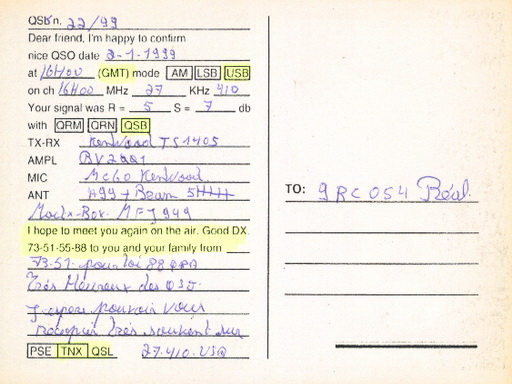 QSL n. 22/99
Dear friend, I'm happy to confirm
nice QSO date 2-1-1999
at 16H00 (GMT) mode AM LSB USB
on ch 16H00 MHz 27 KHz 410
Your signal was R = 5 S = 7 db
with QRM QRN QSB
TX-RX Kenwood TS 140S
AMPL BV2001
MIC MC60 Kenwood
ANT A99 + Beam 5
TO: 9RC054 Réal.
Match-Box. MFJ 949
I hope to meet you again on the air. Good DX.
73-51-55-88 to you and your family from
73-51 pour toi 88 QRA
Très Heureux des QSO
J'espère pouvoir vous
recopier très souvent sur
PSE TNX QSL 27.410.USB